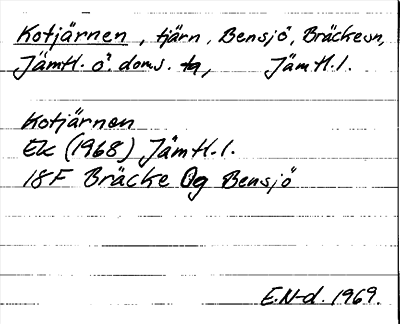 Kotjärnen, tjärn, Bensjö, Bräcke sn,
Jämtl. ö. doms. tg, Jämtl. l.
Kotjärnen
Ek (1968) Jämtl. l.
18F Bräcke 0g Bensjö
E.N-d. 1969.